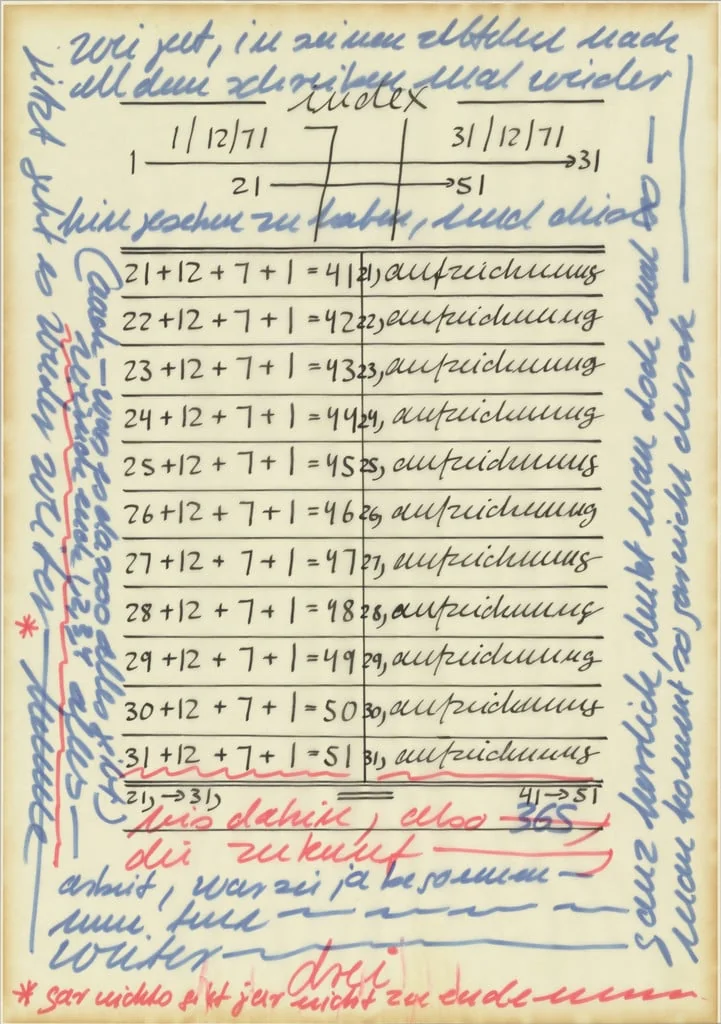 wie gut, in seinen nach
all dem schreiben mal wieder
index
1/12/71 31/12/71
1 → 31
21 → 51
hin gesehen zu haben, und
21+12+7+1=41 21, aufzeichnung
22+12+7+1=42 22, aufzeichnung
23+12+7+1=43 23, aufzeichnung
24+12+7+1=44 24, aufzeichnung
25+12+7+1=45 25, aufzeichnung
26+12+7+1=46 26, aufzeichnung
27+12+7+1=47 27, aufzeichnung
28+12+7+1=48 28, aufzeichnung
29+12+7+1=49 29, aufzeichnung
30+12+7+1=50 30, aufzeichnung
31+12+7+1=51 31, aufzeichnung
21, → 31, 41 → 51
bis dahin, also 365
die zukunft
arbeit, war sie ja begonnen
nun, und
weiter
drei
* gar nichts gibt gar nicht zu ende
ganz herrlich, denkt man doch mal so
man kommt so gar nicht durch
jetzt geht es wieder weiter *
(auch was es da 2000 alles gibt)
zurück auch 1234 alles